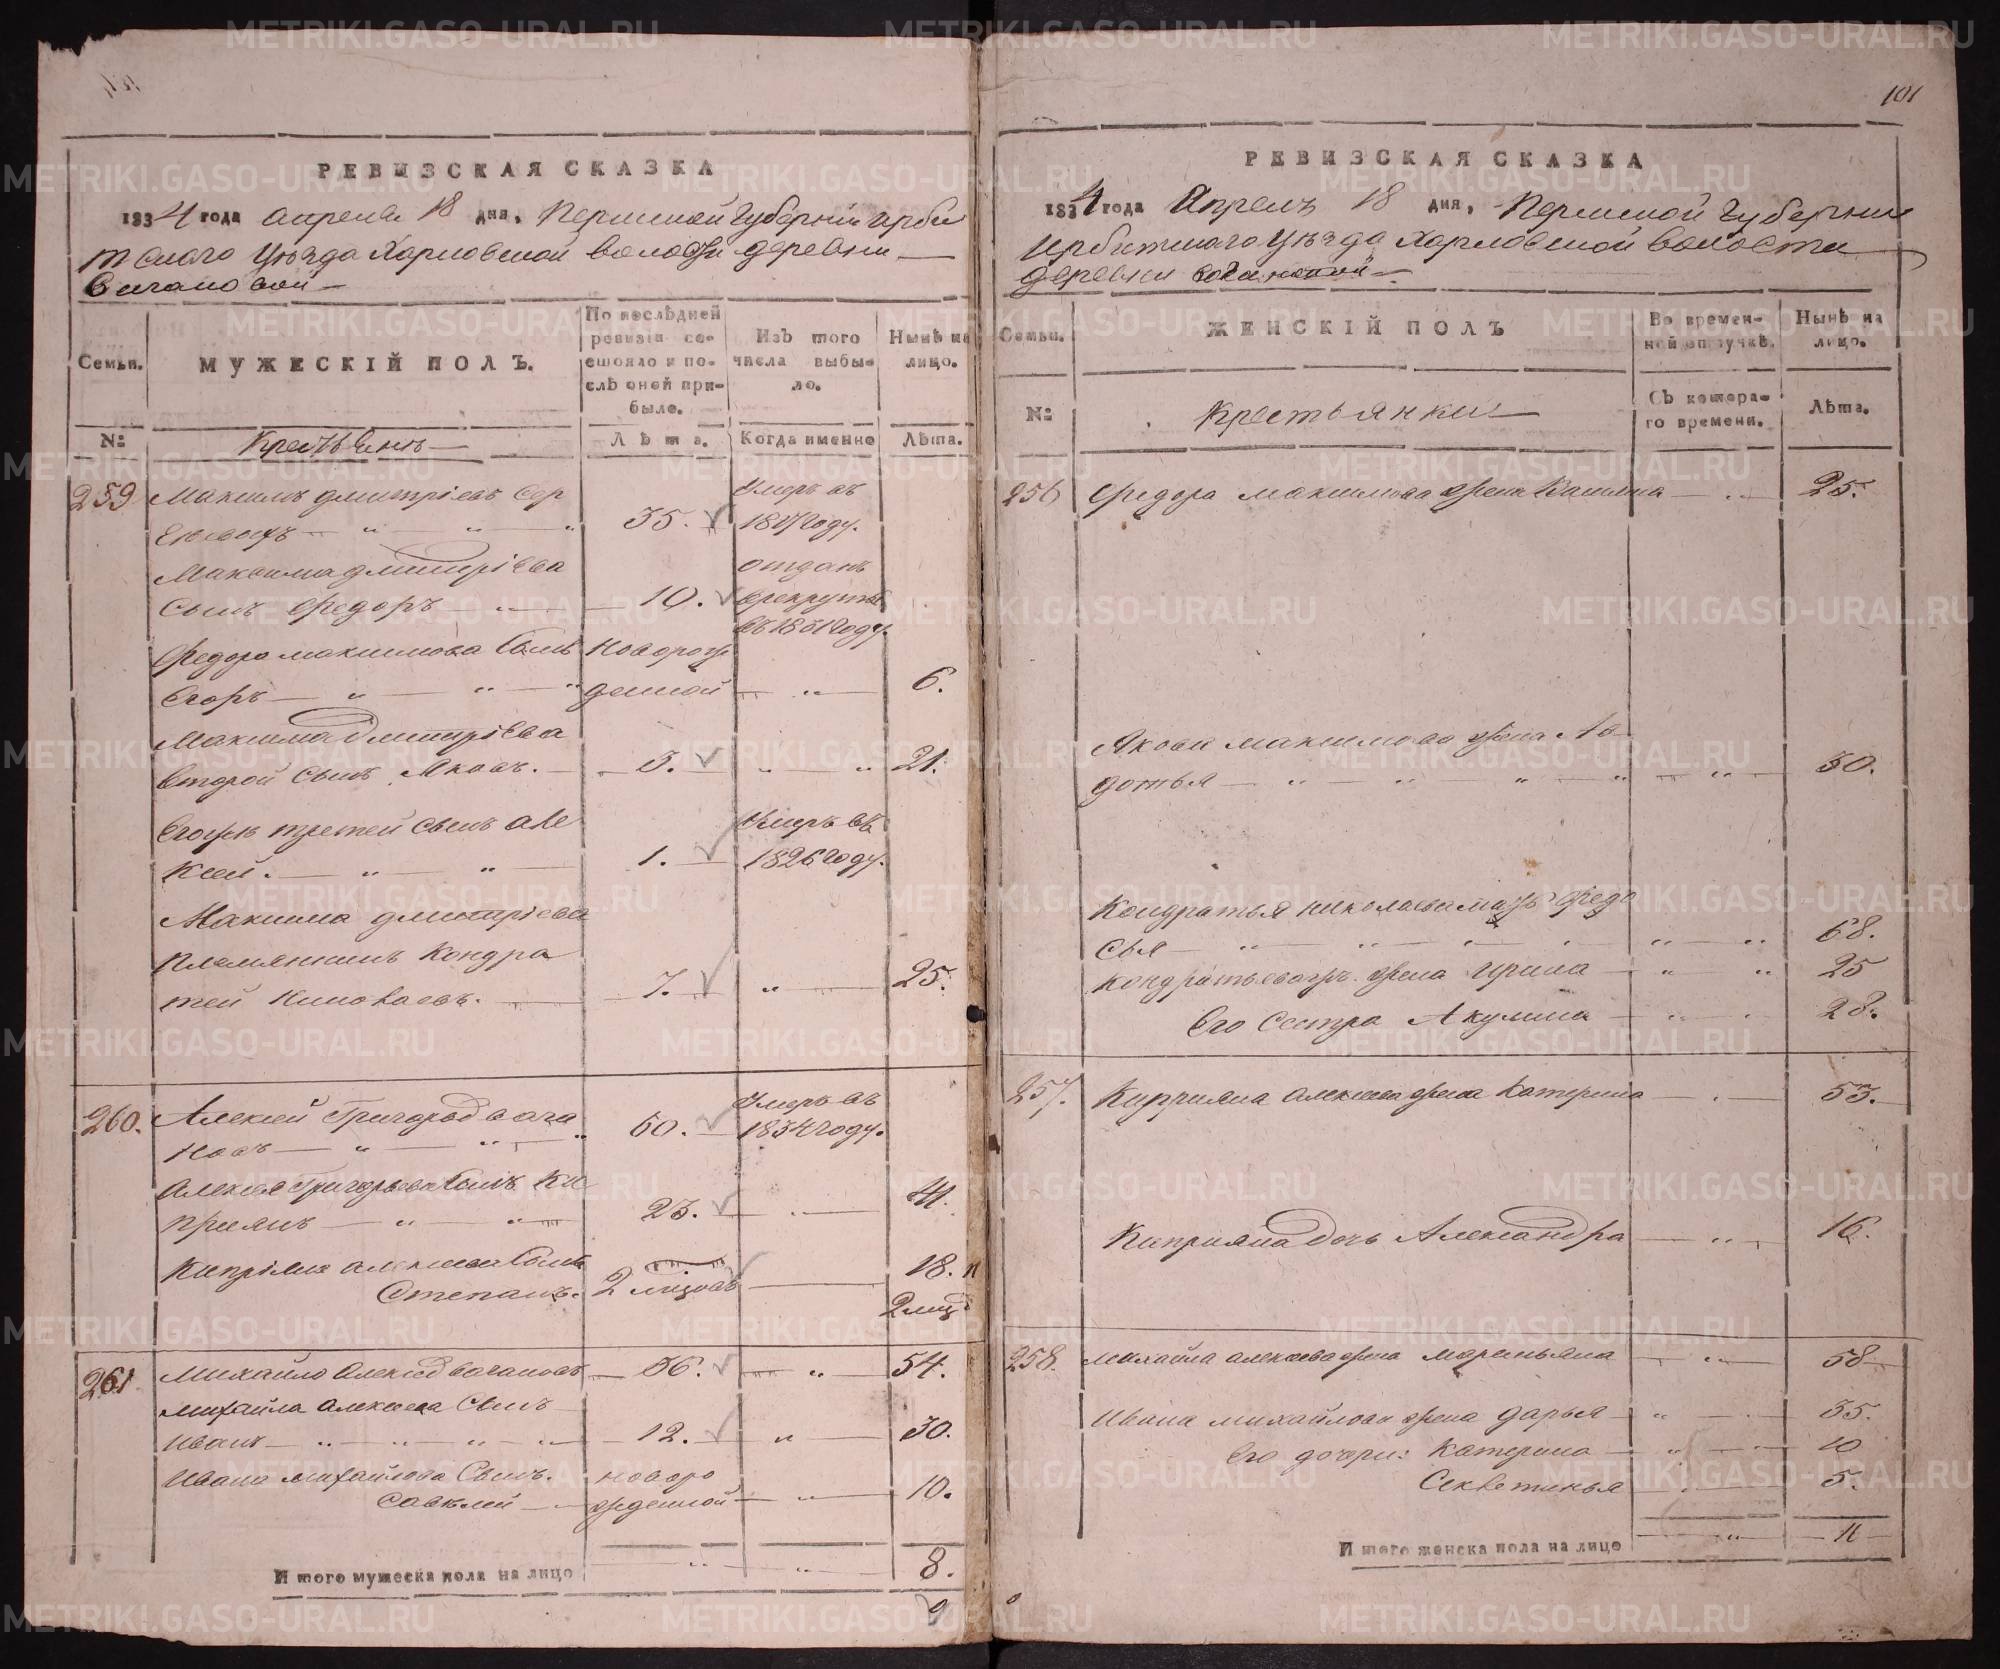 101
РЕВИЗСКАЯ СКАЗКА
1834 года апреля 18 дня, Пермской Губернiи Ирби
тскаго Уѣзда Харловской волости деревни
Вагановой
Семьи.
МУЖЕСКІЙ ПОЛЪ.
По послѣдней
ревизіи со-
стояло и по-
слѣ оной при-
было.
Изъ того
числа выбы-
ло.
Нынѣ на
лицо.
№:
Крестьянъ
Лѣта.
Когда именно
Лѣта.
259
Максимъ Дмитріевъ
35.
Умеръ въ
1817 году.
Максима Дмитріева
Сынъ Федоръ
10.
отданъ
в рекруты
въ 1831 году.
Федора Максимова Сынъ
Егоръ
новорож
денной
6.
Максима Дмитріева
второй Сынъ Яковъ.
3.
21.
Егожъ третей Сынъ Але
ксей.
1.
Умеръ въ
1826 году.
Максима Дмитріева
Племянникъ Кондра
тей Николаевъ.
7.
25.
260.
Алексей Григорьевъ Вага
новъ
60.
Умеръ въ
1834 году.
Алексея Григорьева Сынъ Ки
приянъ
23.
41.
Кипріяна алексеева Сынъ
Степанъ.
2 мцовъ
18. и
2 мцъ
261
Михайло Алексеевъ Вагановъ
36.
54.
Михайла Алексеева Сынъ
Иванъ
12.
30.
Ивана Михайлова Сынъ.
Савелей
новоро
жденной
10.
Итого мужеска пола на лицо
8.
9
РЕВИЗСКАЯ СКАЗКА
1834 года Апрель 18 дня, Пермской Губернии
Ирбитскаго Уѣзда Харловской волости
деревни Вагановой
Семьи.
ЖЕНСКІЙ ПОЛЪ
Во времен-
ной отлучкѣ.
Нынѣ на
лицо.
№:
Крестьянки
Съ котора-
го времени.
Лѣта.
256
Федора Максимова жена Василиса
25.
Якова Максимова жена Ав
дотья
30.
Кондратья Николаева мать Федо
сья
68.
Кондратья жена Ирина
25
Его Сестра Акулина
28.
257.
Куприяна алексеева жена Катерина
53.
Киприяна дочь Александра
16.
258.
Михайла алексеева жена Мареmьяна
58
Ивана Михайлова жена Дарья
35.
Его дочери: Катерина
10
Секлетинья
5.
Итого женска пола на лицо
11
METRIKI.GASO-URAL.RU